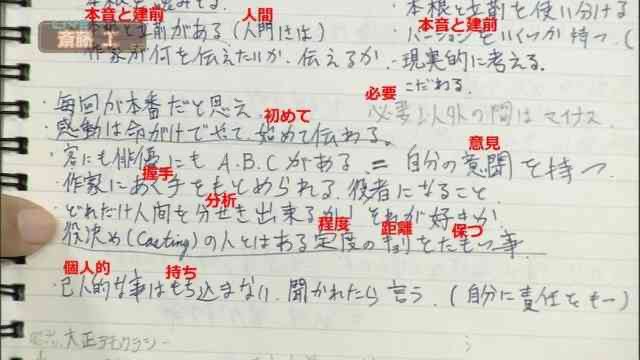 本音と建前 人間 本音と建前
本根と立前を使い分ける
斎藤工
立前がある(人門さは)
・バージョンをいくつか持つ。(
作家が何を伝えたいか、伝えるか、現実的に考える。
必要 こだわる。
・毎回が本番だと思え 必要以外の間はマイナス
初めて
感動は命がけでやって、始めて伝わる。
意見
・客にも俳優にもA.B.Cがある = 自分の意聞を持つ
握手
・作家にあく手をもとめられる、役者になること
分析
・どれだけ人間を分せき出来るか!それが好きか
程度 距離 保つ
役決め(Casting)の人とはある定度のキョリをたもつ事
個人的 持ち
・己人的な事はもち込まない、聞かれたら言う。(自分に責任をもー)
大正デモクラシー